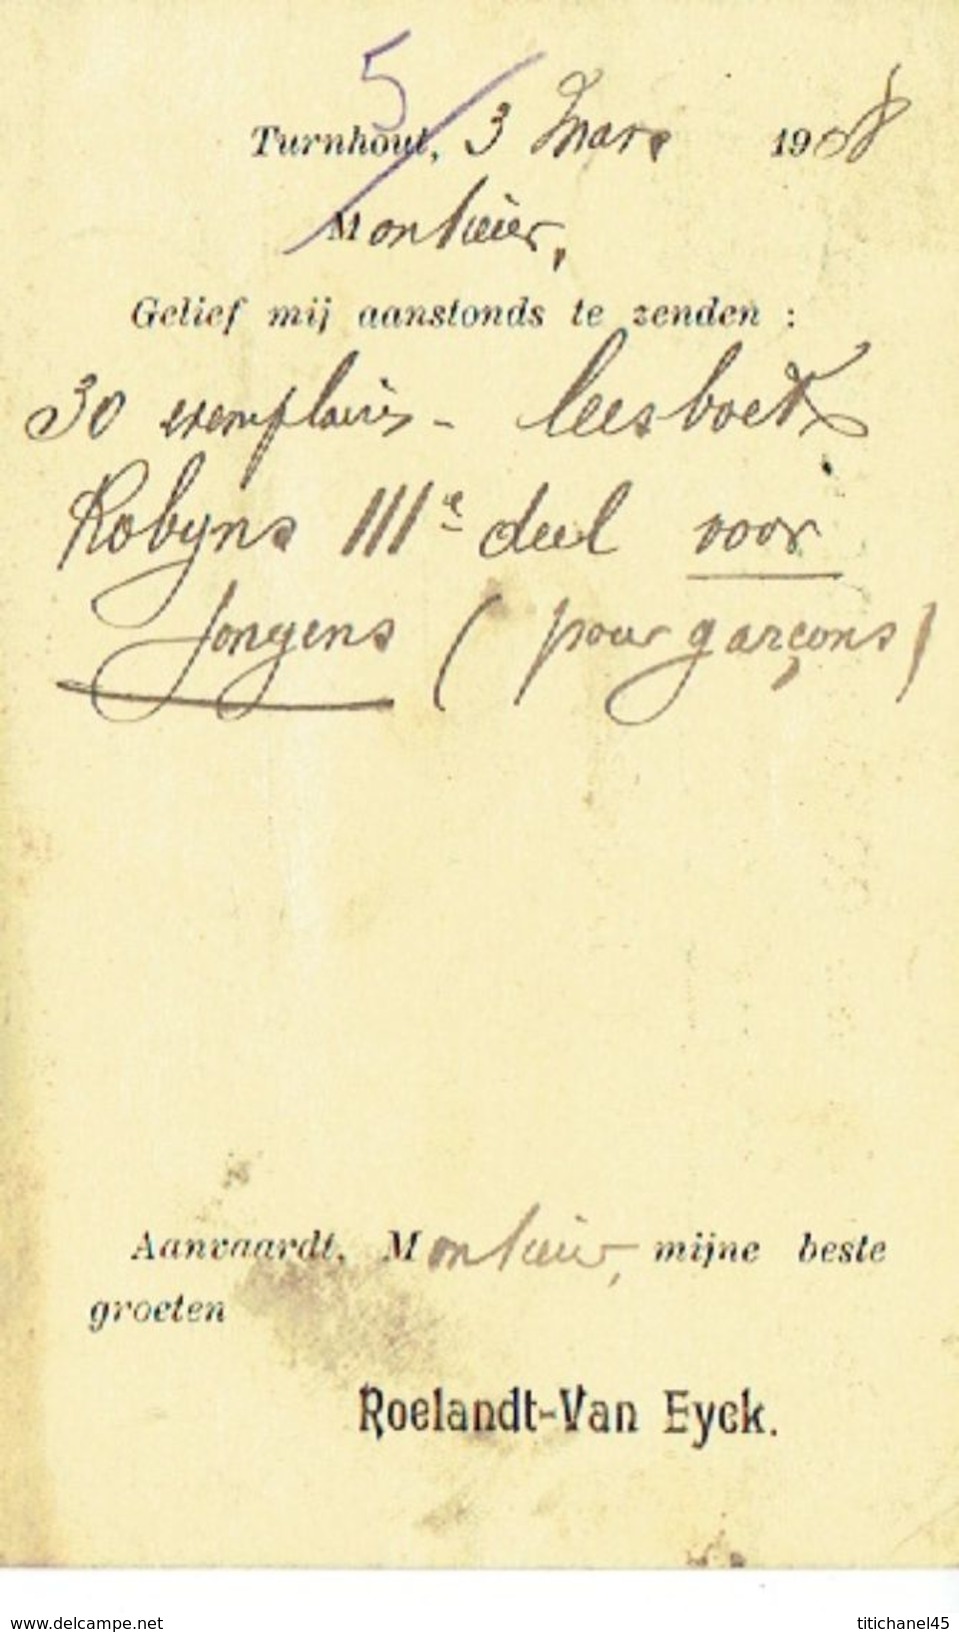 5
Turnhout, 3 Mars 1908
Monsieur,
Gelief mij aanstonds te zenden :
30 exemplaires - leesboek
Robyns IIIe deel voor
Jongens (pour garçons)
Aanvaardt, Monsieur, mijne beste
groeten
Roelandt-Van Eyck.
www.delcampe.net titichanel45